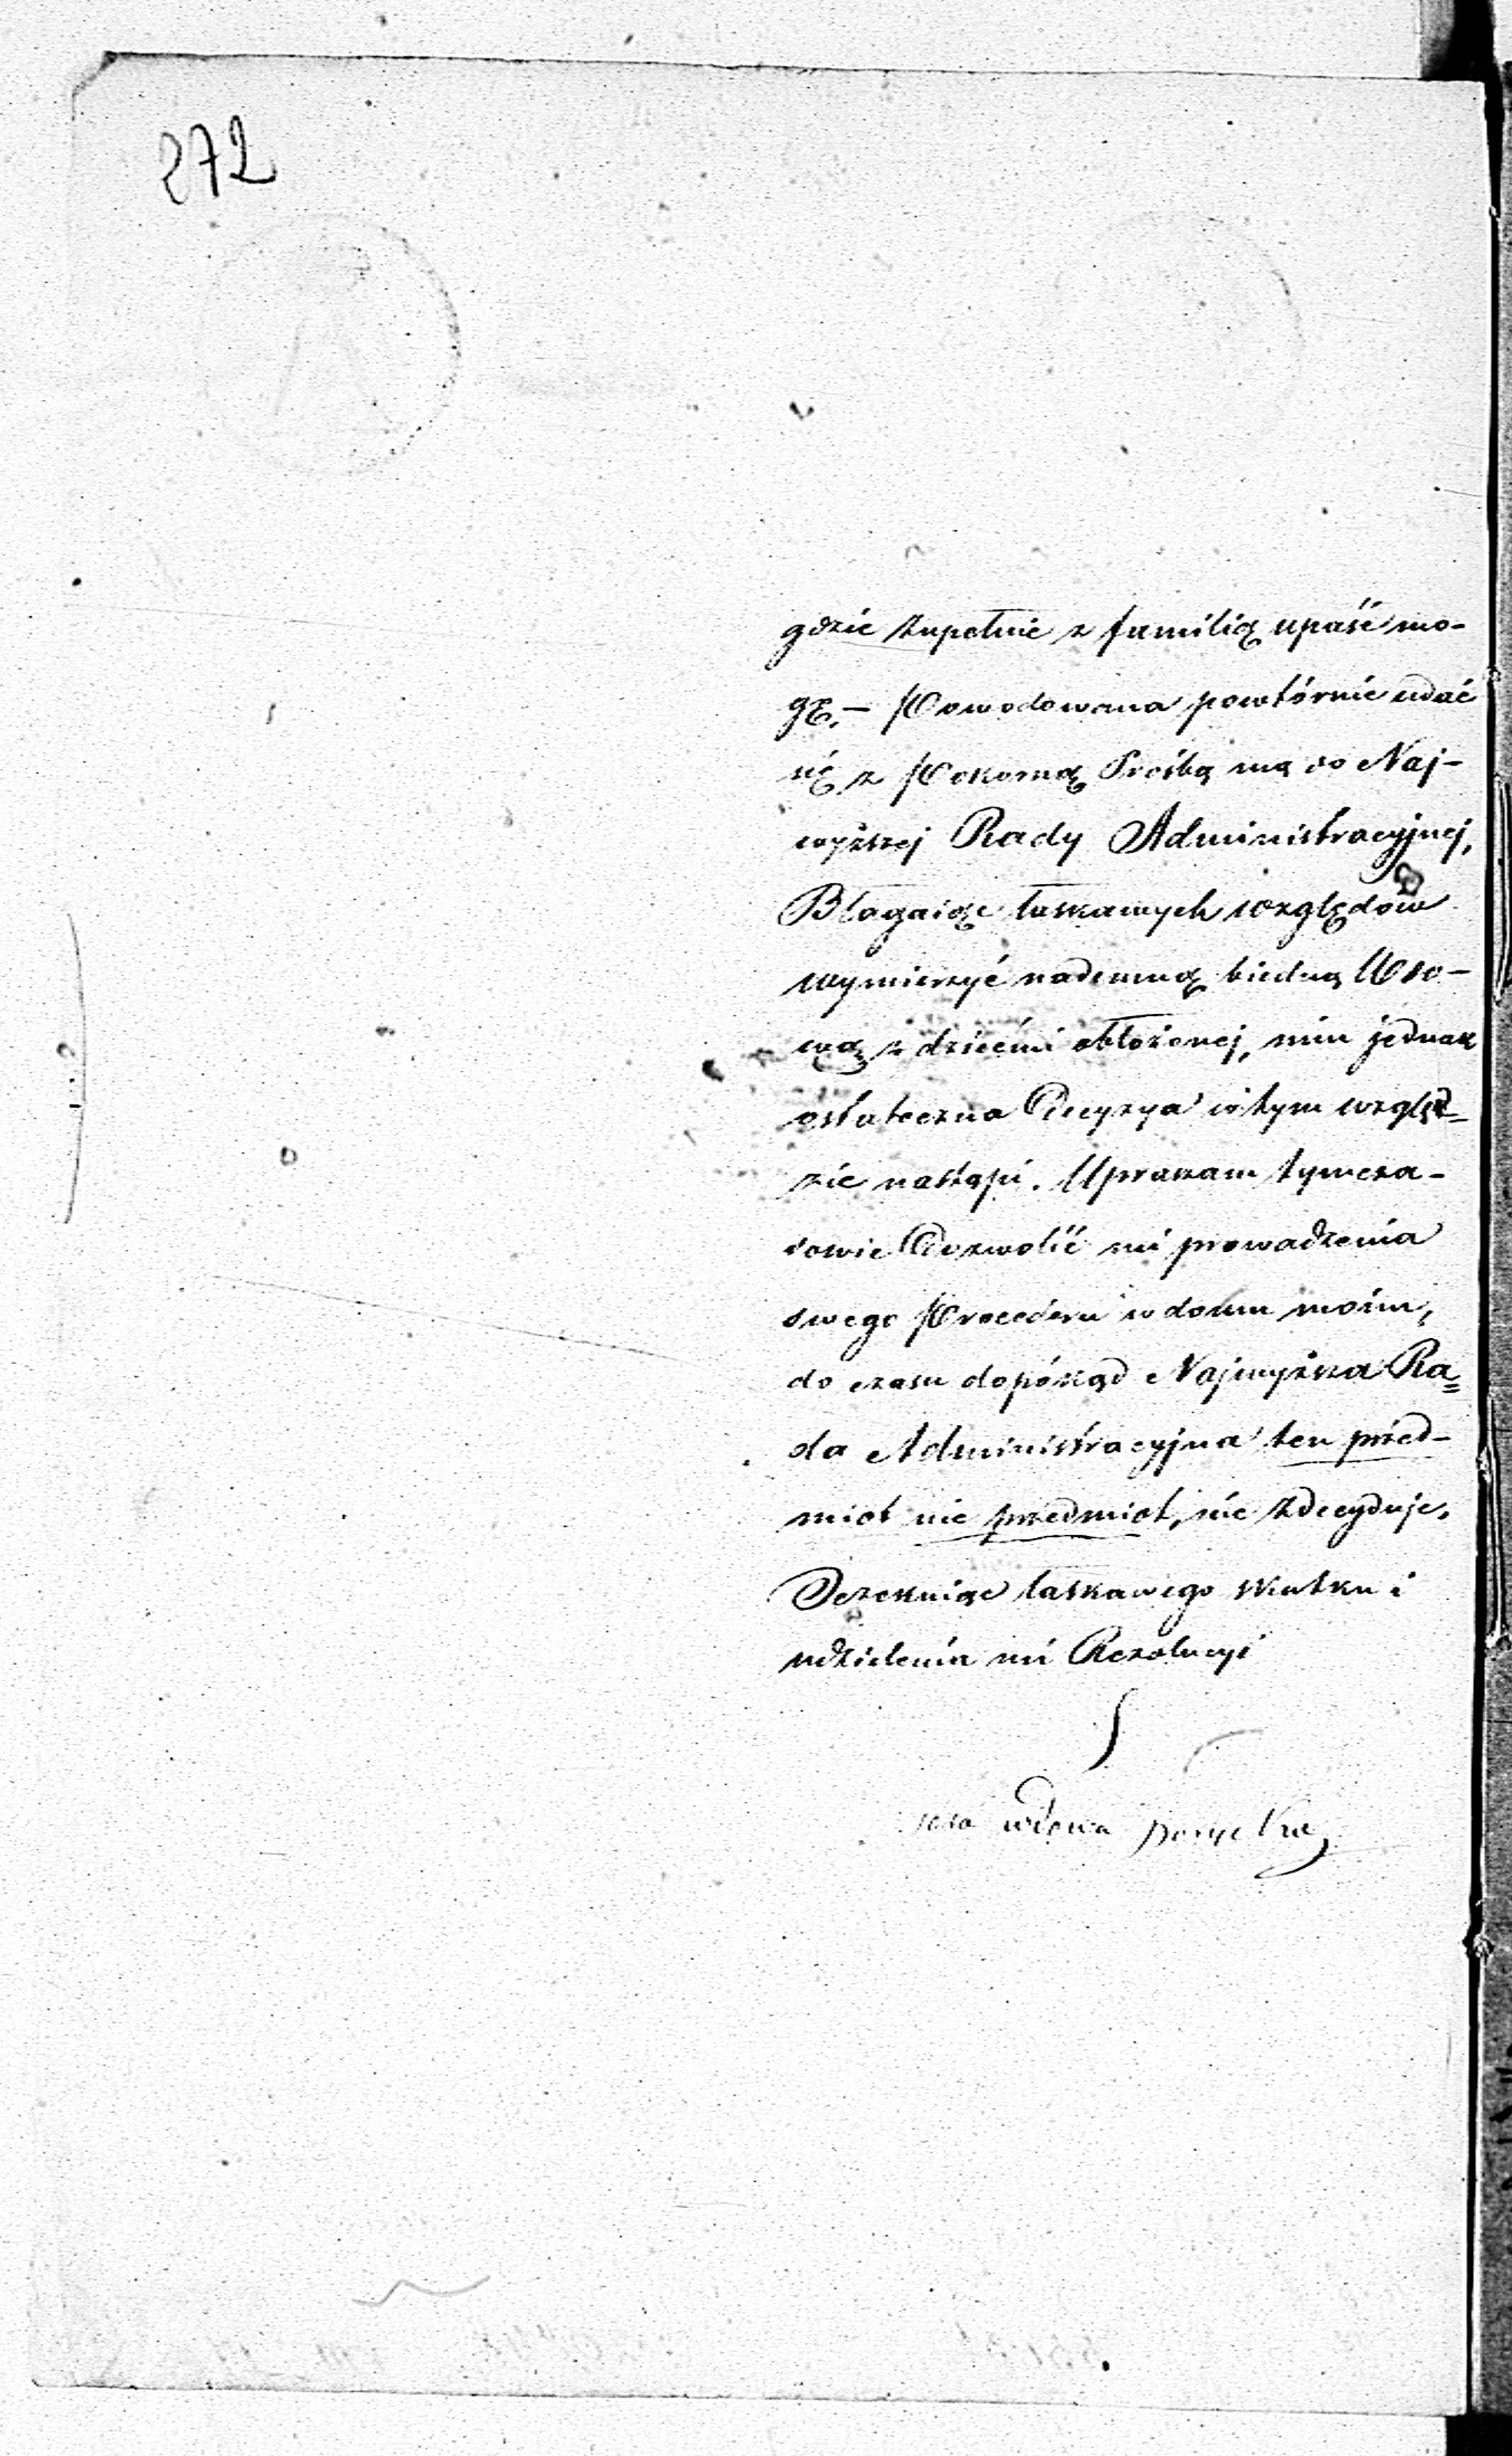 272
gdzie Zupełnie z familią upaść mo-
gę. – Powodowana powtórnie udać
się z Pokorną Prośbą mą do Naj-
wyższej Rady Administracyjnej,
Błagaiąc łaskawych względów
wymierzyć nademną biedną Wdo-
wą z dziećmi obłożonej, nim jednak
ostateczna Decyzya w tym wzglę-
zie nastąpi. Upraszam tymcza-
sowie Dozwolić mi prowadzenia
swego Procederu w domu moim,
do czasu dopókąd Najwyższa Ra=
da Administracyjna ten przed-
miot nie przedmiot, nie Zdecyduje.
Oczekuiąc łaskawego skutku i
udzielenia mi Rezolucyi
wdowa